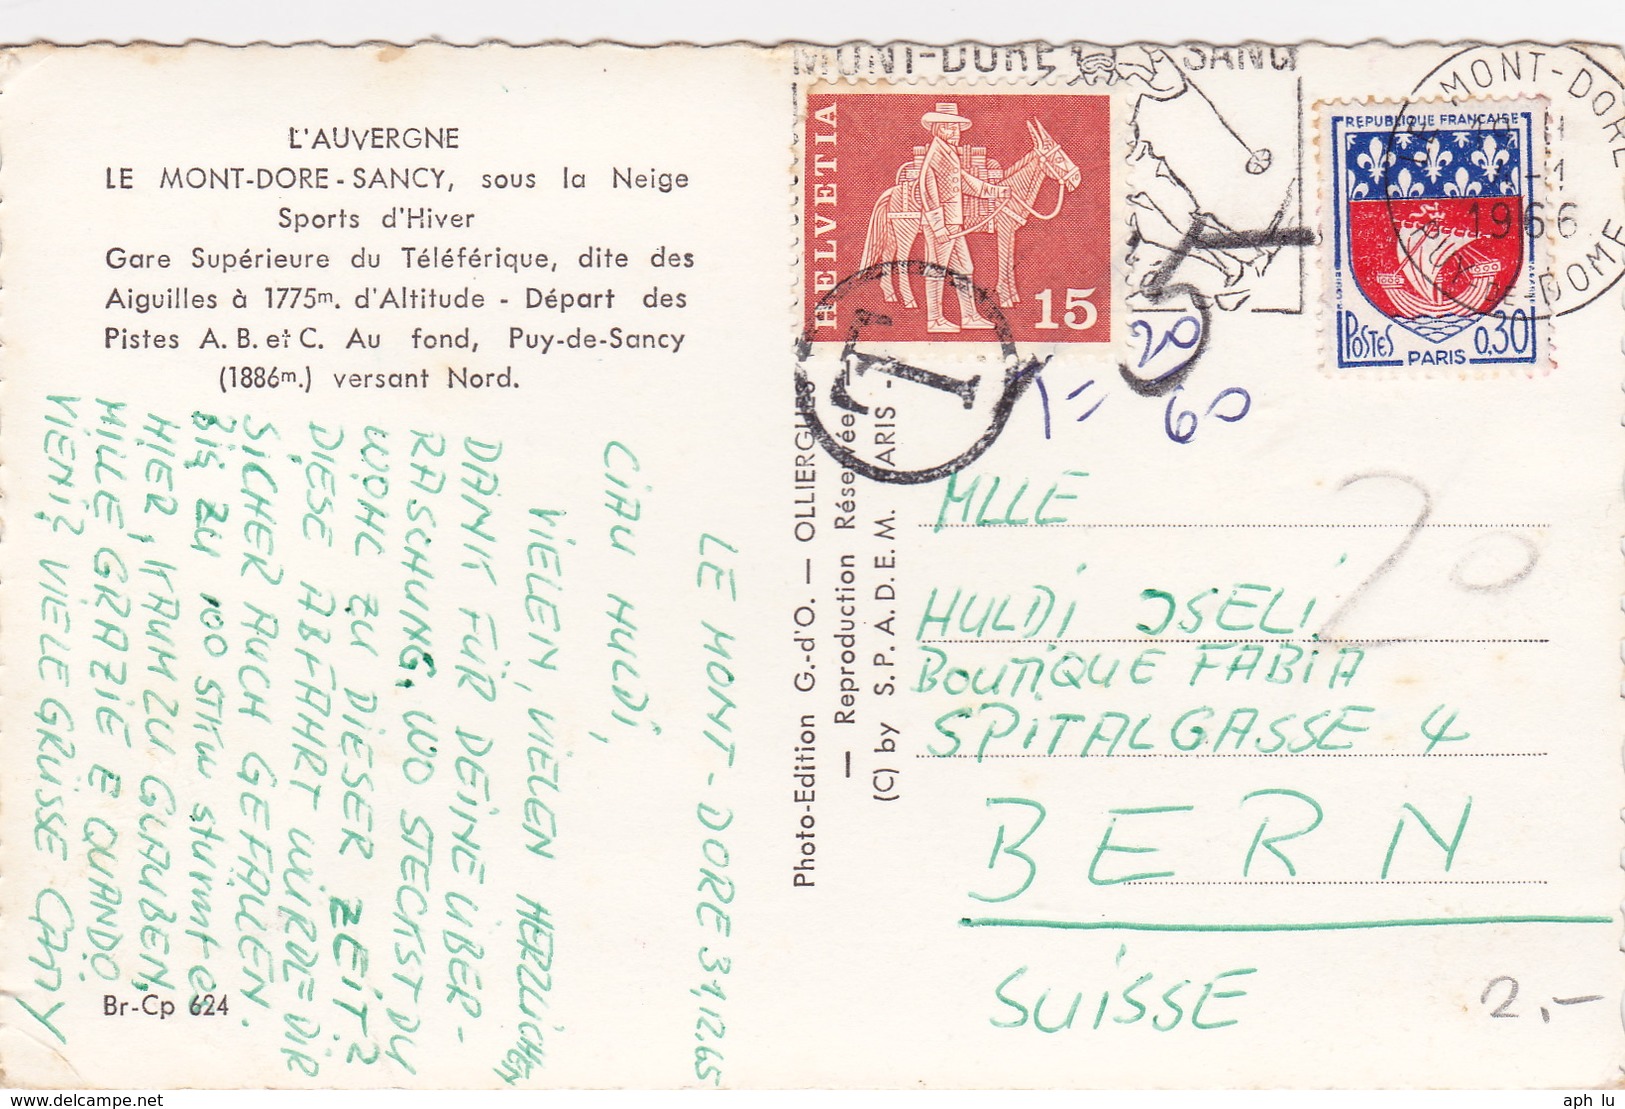 L'AUVERGNE
LE MONT-DORE-SANCY, sous la Neige
Sports d'Hiver
Gare Supérieure du Téléférique, dite des
Aiguilles à 1775m. d'Altitude - Départ des
Pistes A. B. et C. Au fond, Puy-de-Sancy
(1886m.) versant Nord.
LE MONT-DORE 31,12.65
CIAU HULDI,
VIELEN, VIELEN HERZLICHEN
DANK FÜR DEINE ÜBER-
RASCHUNG. WO STECKST DU
WOHL ZU DIESER ZEIT?
DIESE ABFAHRT WÜRDE DIR
SICHER AUCH GEFALLEN.
BIS ZU 100 STKM STURMT ES
HIER, KAUM ZU GLAUBEN,
MILLE GRAZIE E QUANDO
VIENI? VIELE GRÜSSE
Br-Cp 624
Photo-Edition G.-d'O. — OLLIERGUES
— Reproduction Réservée —
(C) by S. P. A. D. E. M. PARIS -
MONT-DORE SANCY
HELVETIA
15
T
T = 20
60
REPUBLIQUE FRANÇAISE
POSTES
0,30
PARIS
LE MONT-DORE
1966
PUY-DE-DOME
MLLE
HULDI ISELI
BOUTIQUE FABIA
SPITALGASSE 4
BERN
SUISSE
20
2.-
aph lu